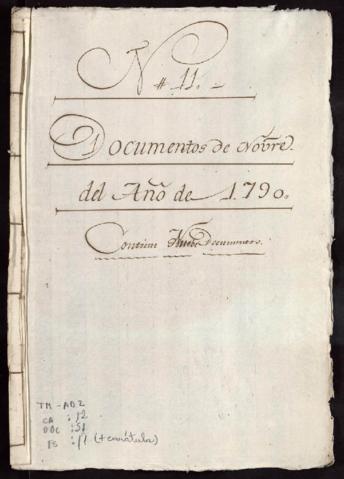 N # 11.
Documentos de Nobre
del Año de 1790.
Contiene Documentos.
TM-AD2
CA : 12
DOC : 51
FS : 11 (+ carátula)